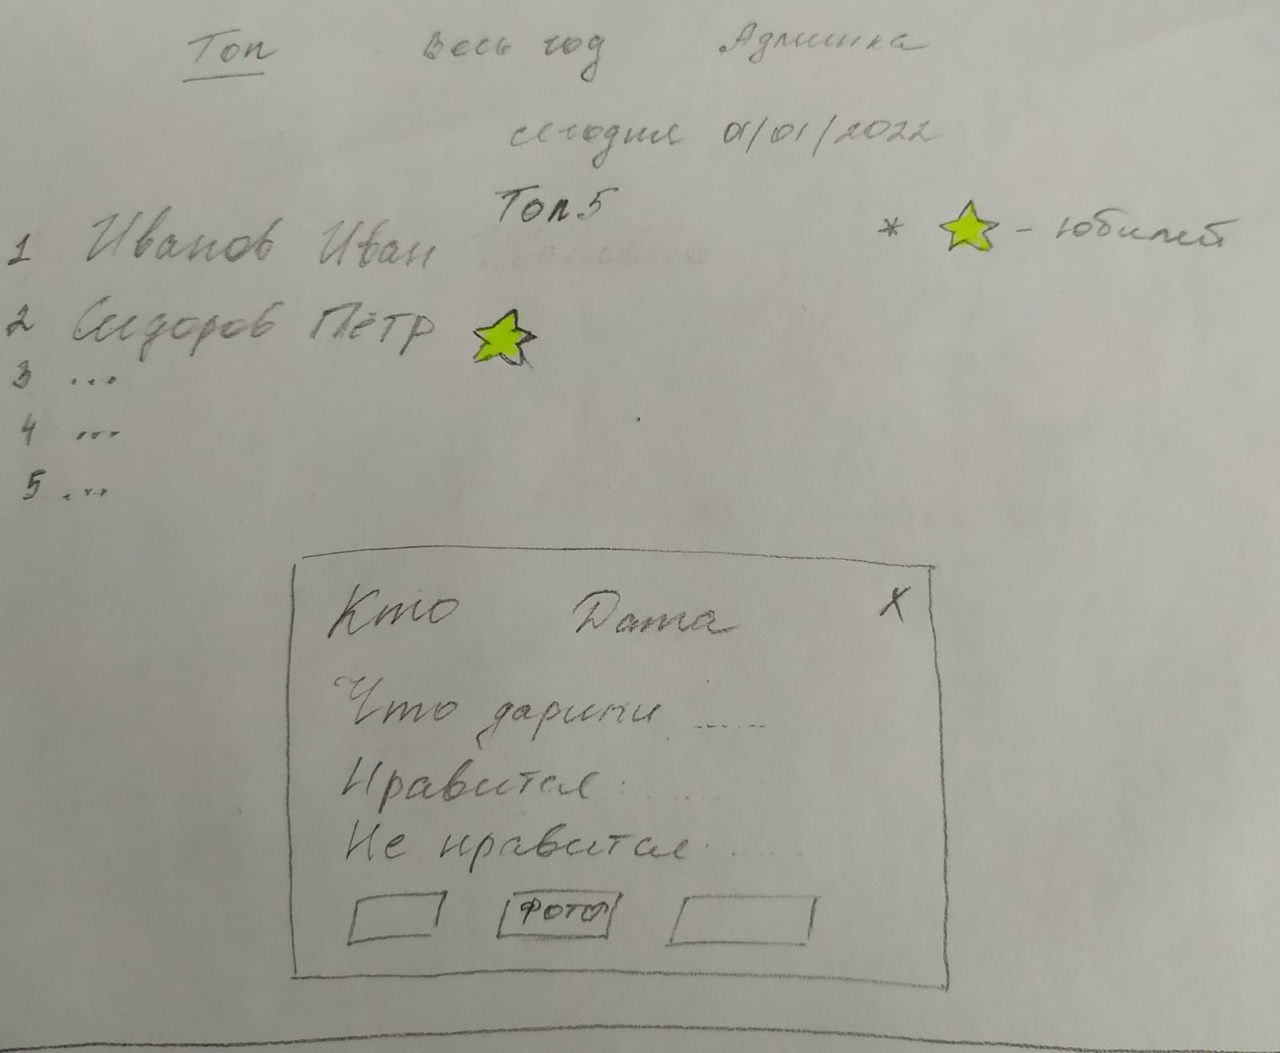 Топ Весь год Админка
сегодня 01/01/2022
Топ 5
* - юбилей
1 Иванов Иван
2 Сидоров Пётр
3 ...
4 ...
5 ...
Кто Дата X
Что дарили ......
Нравится: .....
Не нравится: .....
ФОТО